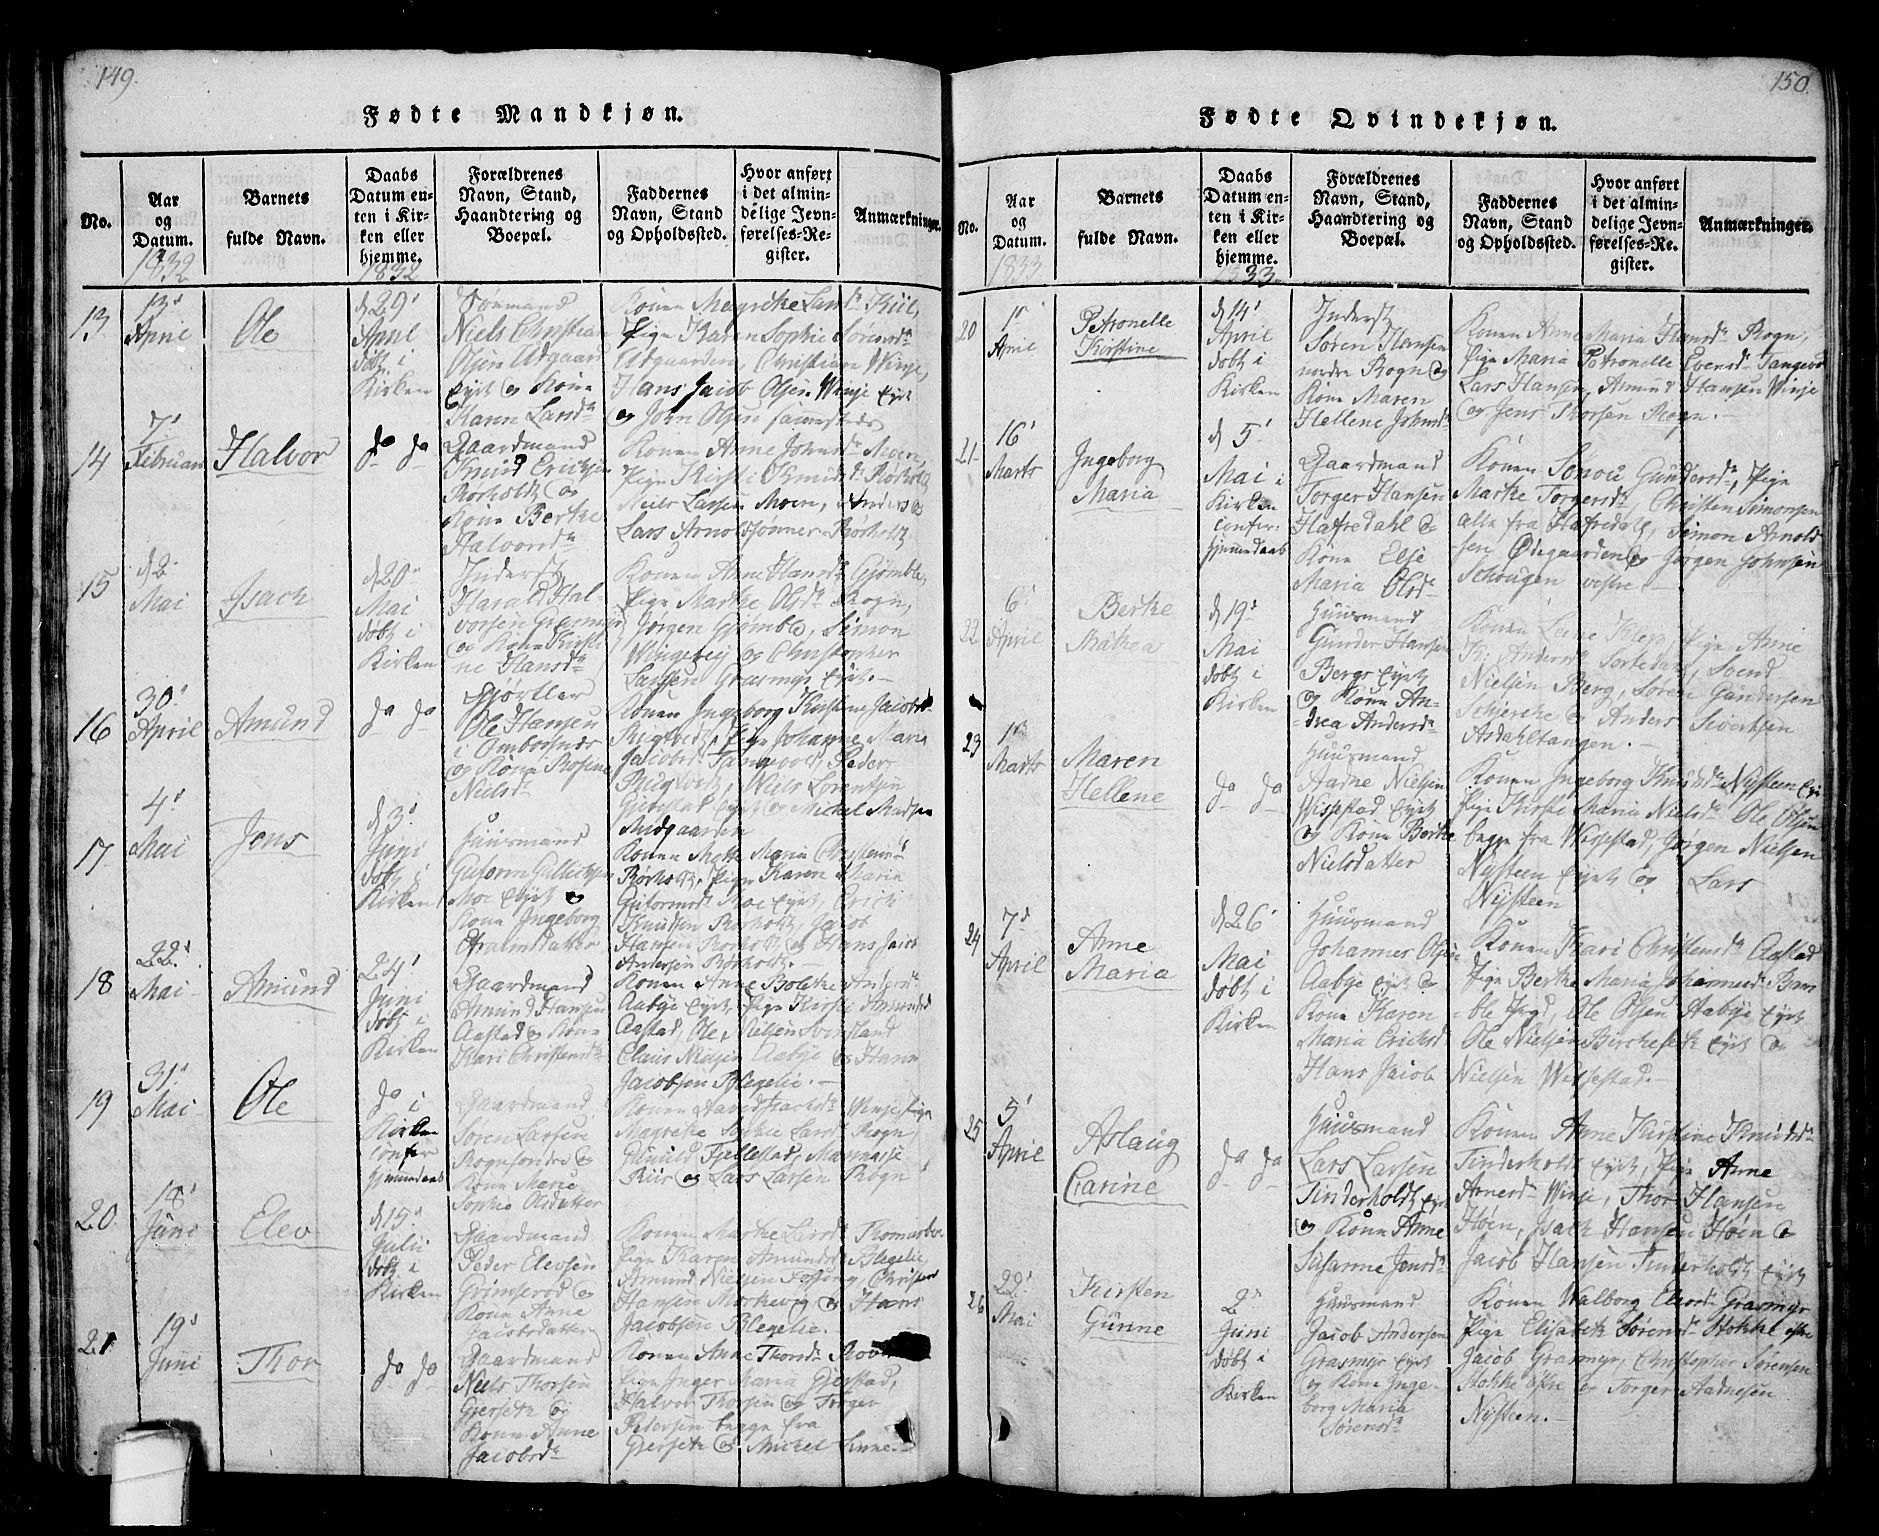 149.
Fødte Mandkjøn.
No.
Aar og Datum.
Barnets fulde Navn.
Daabs Datum enten i Kirken eller hjemme.
Forældrenes Navn, Stand, Haandtering og Boepæl.
Faddernes Navn, Stand og Opholdssted.
Hvor anført i det almindelige Jevnførelses-Register.
Anmærkninger.
1832
1832
13
13d
April
Ole
d 29d
April
døbt i
Kirken
Niels Christian
Olsen Adgaard
Eyet og Kone
Karen Larsd
Konen Magrethe Larsd Kiil,
Pige Karen Sophie Sørensd
Adgaarden, Christian Winje,
Hans Jacob Olsen Winje Eyet
og John Olsen
14
7d
Februar
Halvor
do do
Gaardmand
Knud Erichsen
Rørholdt og
Kone Berthe
Halvorsd
Konen Anne Johnsd Moen,
Pige Kirsti Knudsd Rørholt,
Niels Larsen Moen, Anders &
Lars Arnoldsønner Rørholt
15
d 2
Mai
Isach
d 20
Mai
døbt i
Kirken
Inderst
Harald Hal-
vorsen Grasmyr
og Kone Kirsti-
ne Hansd
Konen Anne Hansd Gjømble,
Pige Marthe Olsd Rogn,
Jørgen Gjømble, Simon
og Christopher
Larsen Grasmyr Eyet.-
16
30d
April
Amund
do do
Ole Hansen
og Kone Rosine
Nielsd
Konen Ingeborg Kirstine Jacobsd
Pige Johanne Maria
Jacobsd Peder
Niels Lorentsen
Eyet og Michel Madsen
Midgaarden
17
4d
Mai
Jens
d 3d
Juni
døbt i
Kirken
Huusmand
Gutorm Gullichsen
Moe Eyet og
Kone Ingeborg
Efraimsdatter
Konen Mette Maria Christensd
Rørholt, Pige Karen Maria
Gutormsd Moe Eyet, Erich
Knudsen Rørholt, Jacob
Hansen Rørholt og Hans Jacob
Andersen Rørholt.-
18
22d
Mai
Amund
24d
Juni
døbt i
Kirken
Gaardmand
Amund Hansen
Aastad & Kone
Kari Christensd
Konen Anne Bolethe Andersd
Aabye Eyet, Pige Kirsti Amundsd
Aastad, Ole Nielsen
Claus Nielsen Aabye og Hans
Jacobsen Blegelie.-
19
31d
Mai
Ole
do i
Kirken
confer
Hjemmedaab
Gaardmand
Søren Larsen
Rogn søndre &
Kone Marie
Sophie Olsdatter
Konen Isachsd Winje, Pige
Magrethe Sophie Larsd Rogn,
Gunild Fjellestad,
Kiir og Lars Larsen Rogn
20
18d
Juni
Elev
d 15d
Julii
døbt i
Kirken
Gaardmand
Peder Elevsen
Grimserød &
Kone Anne
Jacobsdatter
Konen Marthe Larsd
Pige Karen Amundsd Blegelie,
Amund Nielsen Fossing, Christen
Hansen og Hans
Jacobsen Blegelie.
21
19d
Juni
Thor
do do
Gaardmand
Niels Thorsen
Gjerseth &
Kone Anne
Jacobsd
Konen Anne Thorsd
Pige Inger Maria Gjerstad,
Halvor Thorsen og Torger
Pedersen begge fra
Gjerseth & Michel Linne.-
150
Fødte Qvindekjøn.
No.
Aar og Datum.
Barnets fulde Navn.
Daabs Datum enten i Kirken eller hjemme.
Forældrenes Navn, Stand, Haandtering og Boepæl.
Faddernes Navn, Stand og Opholdssted.
Hvor anført i det almindelige Jevnførelses-Register.
Anmærkninger.
1833
33
20
1d
April
Petronelle
Kirstine
d 14d
April
døbt i
Kirken
Inderst
Søren Hansen
nordre Rogn &
Kone Maren
Hellene Johnsd
Konen Anne Maria Hansd Rogn,
Pige Maria Petronelle Evensd Tangevald
Lars Hansen, Amund Hansen Winje
og Jens Thorsen Rogn.-
21
16d
Marts
Ingeborg
Maria
d 5d
Mai i
Kirken
confer
hjemmedaab
Gaardmand
Torger Hansen
Hafredahl &
Kone Else
Maria Olsd
Konen Sønove Gundersd, Pige
Marthe Torgersd, Christen Simonsen
alle fra Hafredahl, Simon Arnold-
sen Ødegaarden & Jørgen Johnsen
Schougen vestre.-
22
6d
April
Berthe
Mathea
d 19d
Mai
døbt i
Kirken
Huusmand
Gunder Hansen
Bergs Eyet
og Kone An-
drea Andersd
Konen Lene Klep, Pige Anne
Andersd Sortedal, Svend
Nielsen Berg, Søren Gundersen
Schjerche & Anders Sivertsen
Asdahltangen.-
23
1d
Marts
Maren
Hellene
do do
Huusmand
Aadne Nielsen
Wissestad Eyet
og Kone Berthe
Nielsdatter
Konen Ingeborg Knudsd Nysteen Ey
Pige Kirsti Maria Nielsd Ole Olsen
begge fra Wissestad, Jørgen Nielsen
Nysteen Eyet og Lars
Nysteen
24
7d
April
Anne
Maria
d 26d
Mai
døbt i
Kirken
Huusmand
Johannes Olsen
Aabye Eyet &
Kone Karen
Maria Erichsd
Konen Kari Christensd Aastad
Pige Berthe Maria Johannesd Bam-
ble Ole Olsen Aabye Eyet
Ole Nielsen Eyet &
Hans Jacob Nielsen Wissestad.-
25
5d
April
Aslaug
Carine
do do
Huusmand
Lars Larsen
Tinderholdt Ey
og Kone Anne
Susanne Jensd
Konen Anne Kirstine Knudsd
Tinderholdt Eyet, Pige Anne
Arnesd Winje, Thor Hansen
Høen, Isach Hansen Høen &
Jacob Hansen Tinderholdt Eyet
26
22d
Mai
Kirsten
Gunne
2d
Juni
døbt i
Kirken
Huusmand
Jacob Andersen
Grasmyr Eyet
og Kone Inge-
borg Maria
Sørensd
Konen Walborg Elevsd Grasmyr
Pige Elisabeth Sørensd Stokke østre
Jacob Grasmyr, Christopher Sørensen
Stokke østre og Torger Aadnesen
Nysteen.-